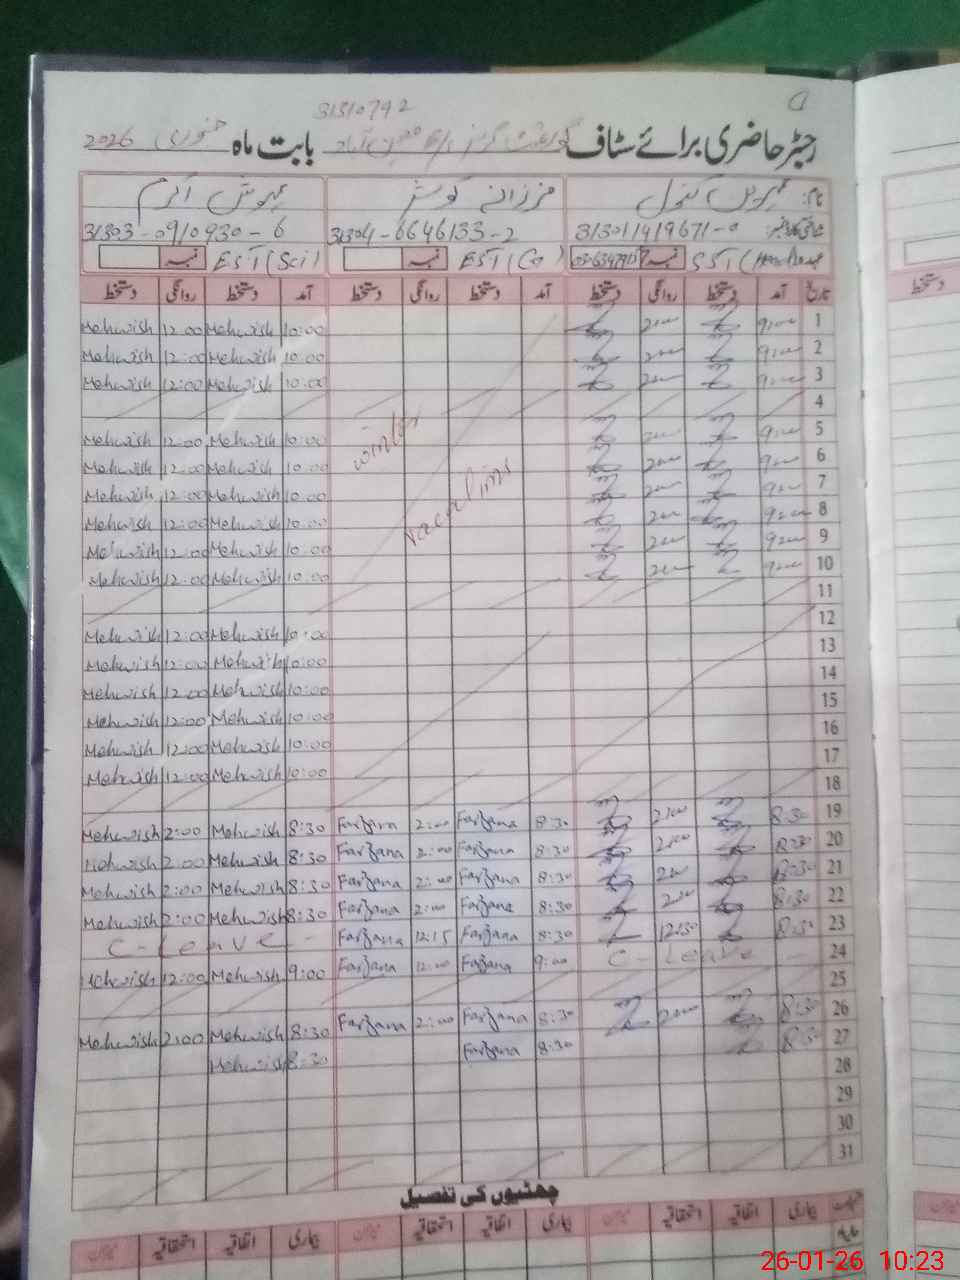 31310792
رجسٹر حاضری برائے سٹاف گورنمنٹ گرلز بابت ماہ جنوری 2026
نام:
313011419671-0 31304-6646133-2 31303-0910930-6
نمبر EST (Sci) نمبر نمبر
تاریخ آمد دستخط روانگی دستخط آمد دستخط روانگی دستخط آمد دستخط روانگی دستخط
1 9:00 2:00 10:00 Mehwish 12:00 Mehwish
2 9:00 2:00 10:00 Mehwish 12:00 Mehwish
3 9:00 2:00 10:00 Mehwish 12:00 Mehwish
4
5 9:00 2:00 10:00 Mehwish 12:00 Mehwish
6 9:00 2:00 10:00 Mehwish 12:00 Mehwish
7 9:00 2:00 10:00 Mehwish 12:00 Mehwish
8 9:00 2:00 10:00 Mehwish 12:00 Mehwish
9 9:00 2:00 10:00 Mehwish 12:00 Mehwish
10 9:00 2:00 10:00 Mehwish 12:00 Mehwish
winter
vacations
11
12 10:00 Mehwish 12:00 Mehwish
13 10:00 Mehwish 12:00 Mehwish
14 10:00 Mehwish 12:00 Mehwish
15 10:00 Mehwish 12:00 Mehwish
16 10:00 Mehwish 12:00 Mehwish
17 10:00 Mehwish 12:00 Mehwish
18
19 8:30 2:00 8:30 Farzana 2:00 Farzana 8:30 Mehwish 2:00 Mehwish
20 8:30 2:00 8:30 Farzana 2:00 Farzana 8:30 Mehwish 2:00 Mehwish
21 8:30 2:00 8:30 Farzana 2:00 Farzana 8:30 Mehwish 2:00 Mehwish
22 8:30 2:00 8:30 Farzana 2:00 Farzana 8:30 Mehwish 2:00 Mehwish
23 8:30 12:30 8:30 Farzana 12:15 Farzana C-Leave
24 C-Leave 9:00 Farzana 12:00 Farzana 9:00 Mehwish 12:00 Mehwish
25
26 8:30 2:00 8:30 Farzana 2:00 Farzana 8:30 Mehwish 2:00 Mehwish
27 8:30 8:30 Farzana 8:30 Mehwish
28
29
30
31
چھٹیوں کی تفصیل
بیماری اتفاقیہ استحقاقیہ بیماری اتفاقیہ استحقاقیہ بیماری اتفاقیہ استحقاقیہ
دستخط
26-01-26 10:23